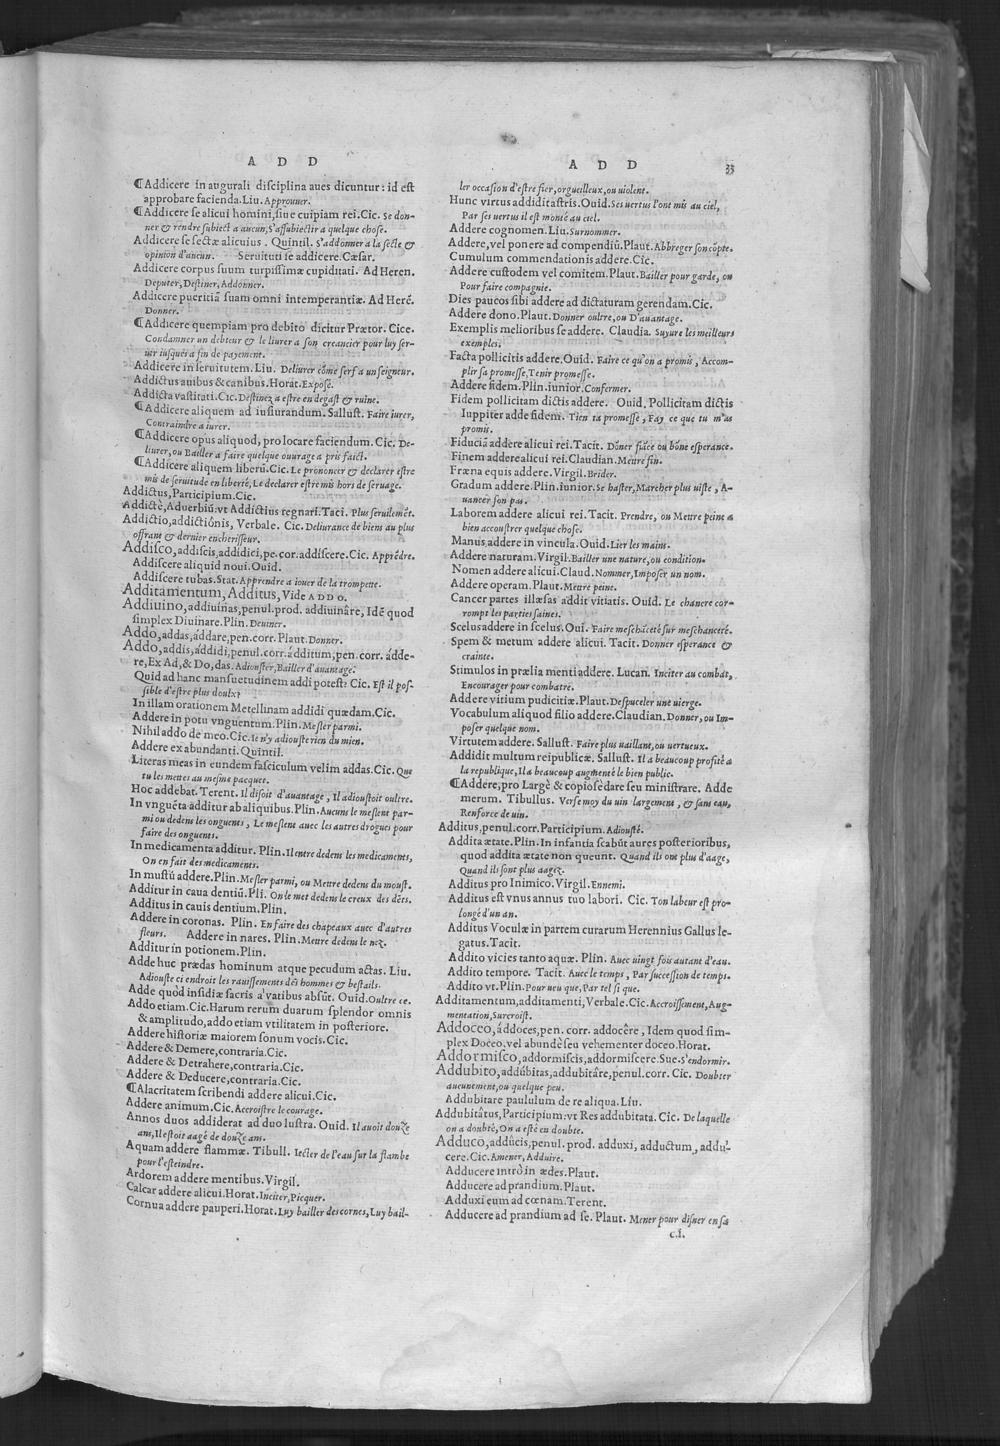 A D D
¶Addicere in augurali disciplina aues dicuntur: id est
approbare facienda. Liu. Approuuer.
¶Addicere se alicui homini, siue cuipiam rei. Cic. Se don-
ner & rendre subiect a aucun, s'assubiectir a quelque chose.
Addicere se sectæ alicuius. Quintil. S'addonner a la secte &
opinion d'aucun. Seruituti se addicere. Cæsar.
Addicere corpus suum turpissimæ cupiditati. Ad Heren.
Deputer, Destiner, Addonner.
Addicere pueritiā suam omni intemperantiæ. Ad Heré.
Donner.
¶Addicere quempiam pro debito dicitur Prætor. Cice.
Condamner un debteur & le liurer a son creancier pour luy ser-
uir iusques a fin de payement.
Addicere in seruitutem. Liu. Deliurer cōme serf a un seigneur.
Addictus auibus & canibus. Horat. Exposé.
Addicta vastitati. Cic. Destinez a estre en degast & ruine.
¶Addicere aliquem ad iusiurandum. Sallust. Faire iurer,
Contraindre a iurer.
¶Addicere opus aliquod, pro locare faciendum. Cic. De-
liurer, ou Bailler a faire quelque ouurage a pris faict.
¶Addicere aliquem liberū. Cic. Le prononcer & declarer estre
mis de seruitude en liberté, Le declarer estre mis hors de seruage.
Addictus, Participium. Cic.
Addictè, Aduerbiū. vt Addictius regnari. Taci. Plus seruilemēt.
Addictio, addictiônis, Verbale. Cic. Deliurance de biens au plus
offrant & dernier encherisseur.
Addisco, addiscis, addidici, pe. cor. addiscere. Cic. Apprēdre.
Addiscere aliquid noui. Ouid.
Addiscere tubas. Stat. Apprendre a iouer de la trompette.
Additamentum, Additus, Vide ADDO.
Addiuino, addiuinas, penul. prod. addiuinâre, Idē quod
simplex Diuinare. Plin. Deuiner.
Addo, addas, áddare, pen. corr. Plaut. Donner.
Addo, addis, áddidi, penul. corr. ádditum, pen. corr. ádde-
re, Ex Ad, & Do, das. Adiouster, Bailler d'auantage.
Quid ad hanc mansuetudinem addi potest? Cic. Est il pos-
sible d'estre plus doulx?
In illam orationem Metellinam addidi quædam. Cic.
Addere in potu vnguentum. Plin. Mesler parmi.
Nihil addo de meo. Cic. Ie n'y adiouste rien du mien.
Addere ex abundanti. Quintil.
Literas meas in eundem fasciculum velim addas. Cic. Que
tu les mettes au mesme pacquet.
Hoc addebat. Terent. Il disoit d'auantage, Il adioustoit oultre.
In vnguēta additur ab aliquibus. Plin. Aucuns le meslent par-
mi ou dedens les onguents, Le meslent auec les autres drogues pour
faire des onguents.
In medicamenta additur. Plin. Il entre dedens les medicaments,
On en fait des medicaments.
In mustū addere. Plin. Mesler parmi, ou Mettre dedens du moust.
Additur in caua dentiū. Pli. On le met dedens le creux des dēts.
Additus in cauis dentium. Plin.
Addere in coronas. Plin. En faire des chapeaux auec d'autres
fleurs. Addere in nares. Plin. Mettre dedens le nez.
Additur in potionem. Plin.
Adde huc prædas hominum atque pecudum actas. Liu.
Adiouste ci endroit les rauissements des hommes & bestails.
Adde quod insidiæ sacris a vatibus absūt. Ouid. Oultre ce.
Addo etiam. Cic. Harum rerum duarum splendor omnis
& amplitudo, addo etiam vtilitatem in posteriore.
Addere historiæ maiorem sonum vocis. Cic.
Addere & Demere, contraria. Cic.
Addere & Detrahere, contraria. Cic.
Addere & Deducere, contraria. Cic.
¶Alacritatem scribendi addere alicui. Cic.
Addere animum. Cic. Accroistre le courage.
Annos duos addiderat ad duo lustra. Ouid. Il auoit douze
ans, Il estoit aagé de douze ans.
Aquam addere flammæ. Tibull. Iecter de l'eau sur la flambe
pour l'esteindre.
Ardorem addere mentibus. Virgil.
Calcar addere alicui. Horat. Inciter, Picquer.
Cornua addere pauperi. Horat. Luy bailler des cornes, Luy bail-
A D D 33
ler occasion d'estre fier, orgueilleux, ou uiolent.
Hunc virtus addidit astris. Ouid. Ses uertus l'ont mis au ciel,
Par ses uertus il est monté au ciel.
Addere cognomen. Liu. Surnommer.
Addere, vel ponere ad compendiū. Plaut. Abbreger son cōpte.
Cumulum commendationis addere. Cic.
Addere custodem vel comitem. Plaut. Bailler pour garde, ou
Pour faire compagnie.
Dies paucos sibi addere ad dictaturam gerendam. Cic.
Addere dono. Plaut. Donner oultre, ou D'auantage.
Exemplis melioribus se addere. Claudia. Suyure les meilleurs
exemples.
Facta pollicitis addere. Ouid. Faire ce qu'on a promis, Accom-
plir sa promesse, Tenir promesse.
Addere fidem. Plin. iunior. Confermer.
Fidem pollicitam dictis addere. Ouid. Pollicitam dictis
Iuppiter adde fidem. Tien ta promesse, Fay ce que tu m'as
promis.
Fiduciā addere alicui rei. Tacit. Dōner fiāce ou bōne esperance.
Finem addere alicui rei. Claudian. Mettre fin.
Fræna equis addere. Virgil. Brider.
Gradum addere. Plin. iunior. Se haster, Marcher plus uiste, A-
uancer son pas.
Laborem addere alicui rei. Tacit. Prendre, ou Mettre peine a
bien accoustrer quelque chose.
Manus addere in vincula. Ouid. Lier les mains.
Addere naturam. Virgil. Bailler une nature, ou condition.
Nomen addere alicui. Claud. Nommer, Imposer un nom.
Addere operam. Plaut. Mettre peine.
Cancer partes illæsas addit vitiatis. Ouid. Le chancre cor-
rompt les parties saines.
Scelus addere in scelus. Oui. Faire meschāceté sur meschanceté.
Spem & metum addere alicui. Tacit. Donner esperance &
crainte.
Stimulos in prælia menti addere. Lucan. Inciter au combat,
Encourager pour combatre.
Addere vitium pudicitiæ. Plaut. Despuceler une uierge.
Vocabulum aliquod filio addere. Claudian. Donner, ou Im-
poser quelque nom.
Virtutem addere. Sallust. Faire plus uaillant, ou uertueux.
Addidit multum reipublicæ. Sallust. Il a beaucoup profité a
la republique, Il a beaucoup augmenté le bien public.
¶Addere, pro Largè & copiosè dare seu ministrare. Adde
merum. Tibullus. Verse moy du uin largement, & sans eau,
Renforce de uin.
Additus, penul. corr. Participium. Adiousté.
Addita ætate. Plin. In infantia scabūt aures posterioribus,
quod addita ætate non queunt. Quand ils ont plus d'aage,
Quand ils sont plus aagez.
Additus pro Inimico. Virgil. Ennemi.
Additus est vnus annus tuo labori. Cic. Ton labeur est pro-
longé d'un an.
Additus Voculæ in partem curarum Herennius Gallus le-
gatus. Tacit.
Addito vicies tanto aquæ. Plin. Auec uingt fois autant d'eau.
Addito tempore. Tacit. Auec le temps, Par succession de temps.
Addito vt. Plin. Pour ueu que, Par tel si que.
Additamentum, additamenti, Verbale. Cic. Accroissement, Aug-
mentation, Surcroist.
Addoceo, áddoces, pen. corr. addocêre, Idem quod sim-
plex Doceo, vel abundè seu vehementer doceo. Horat.
Addormisco, addormiscis, addormiscere. Sue. S'endormir.
Addubito, addúbitas, addubitâre, penul. corr. Cic. Doubter
aucunement, ou quelque peu.
Addubitare paululum de re aliqua. Liu.
Addubitâtus, Participium: vt Res addubitata. Cic. De laquelle
on a doubté, On a esté en doubte.
Adduco, addûcis, penul. prod. adduxi, adductum, addû-
cere. Cic. Amener, Adduire.
Adducere intrò in ædes. Plaut.
Adducere ad prandium. Plaut.
Adduxi eum ad cœnam. Terent.
Adducere ad prandium ad se. Plaut. Mener pour disner en sa
c.i.